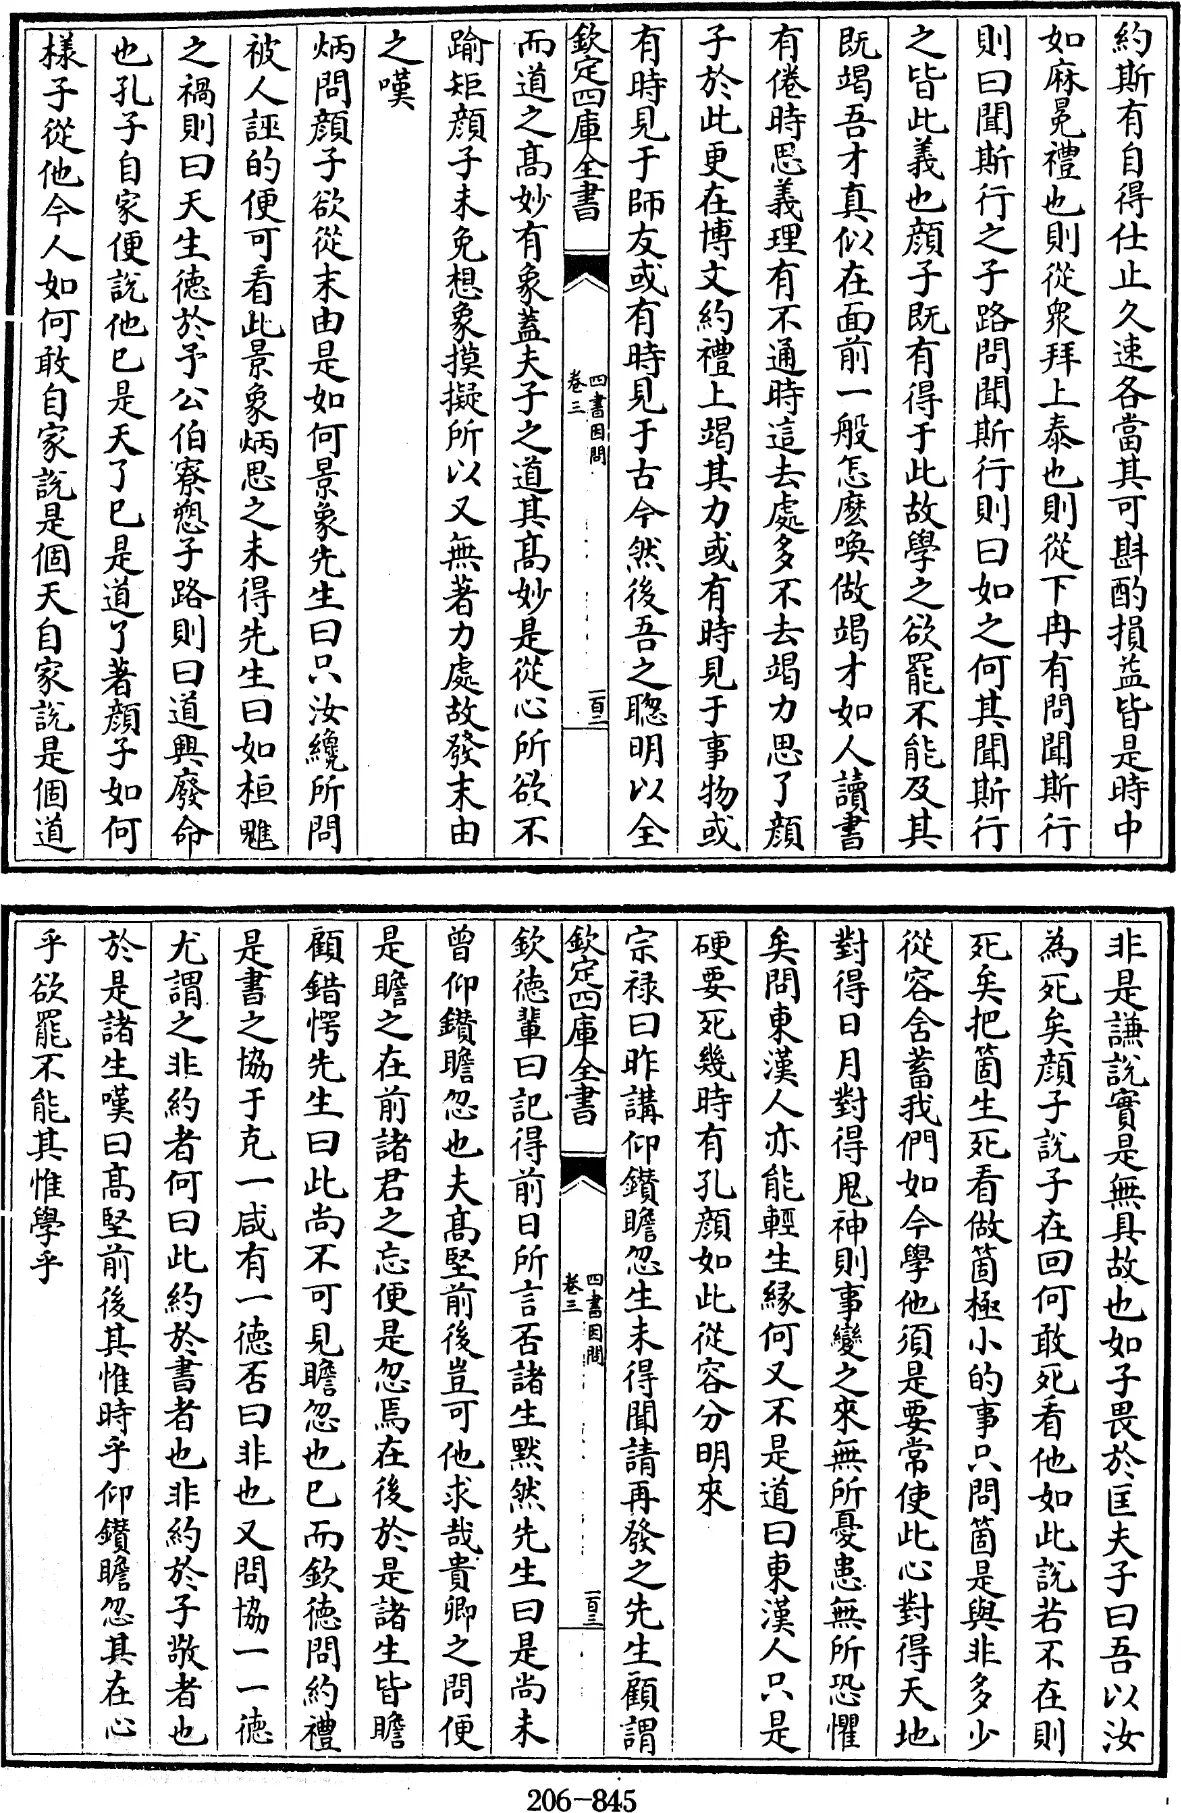 約斯有自得仕止久速各當其可斟酌損益皆是時中
如麻冕禮也則從衆拜上泰也則從下冉有問聞斯行
則曰聞斯行之子路問聞斯行則曰如之何其聞斯行
之皆此義也顔子既有得于此故學之欲罷不能及其
既竭吾才真似在面前一般怎麽喚做竭才如人讀書
有倦時思義理有不通時這去處多不去竭力思了顔
子於此更在博文約禮上竭其力或有時見于事物或
有時見于師友或有時見于古今然後吾之聰明以全
欽定四庫全書
四書因問
卷三
一百二
而道之髙妙有象蓋夫子之道其髙妙是從心所欲不
踰矩顔子未免想象摸擬所以又無著力處故發末由
之嘆
炳問顔子欲從末由是如何景象先生曰只汝纔所問
被人誣的便可看此景象炳思之未得先生曰如桓魋
之禍則曰天生德於予公伯寮愬子路則曰道興廢命
也孔子自家便說他已是天了已是道了著顔子如何
様子從他今人如何敢自家說是個天自家說是個道
非是謙說實是無具故也如子畏於匡夫子曰吾以汝
為死矣顔子說子在回何敢死看他如此說若不在則
死矣把箇生死看做箇極小的事只問箇是與非多少
從容含蓄我們如今學他須是要常使此心對得天地
對得日月對得鬼神則事變之來無所憂患無所恐懼
矣問東漢人亦能輕生緣何又不是道曰東漢人只是
硬要死幾時有孔顔如此從容分明來
宗禄曰昨講仰鑚瞻忽生未得聞請再發之先生顧謂
欽定四庫全書
四書因問
卷三
一百三
欽德輩曰記得前日所言否諸生黙然先生曰是尚未
曾仰鑚瞻忽也夫髙堅前後豈可他求哉貴卿之問便
是瞻之在前諸君之忘便是忽焉在後於是諸生皆瞻
顧錯愕先生曰此尚不可見瞻忽也已而欽德問約禮
是書之協于克一咸有一德否曰非也又問協一一德
尤謂之非約者何曰此約於書者也非約於子敬者也
於是諸生嘆曰髙堅前後其惟時乎仰鑚瞻忽其在心
乎欲罷不能其惟學乎
206-845